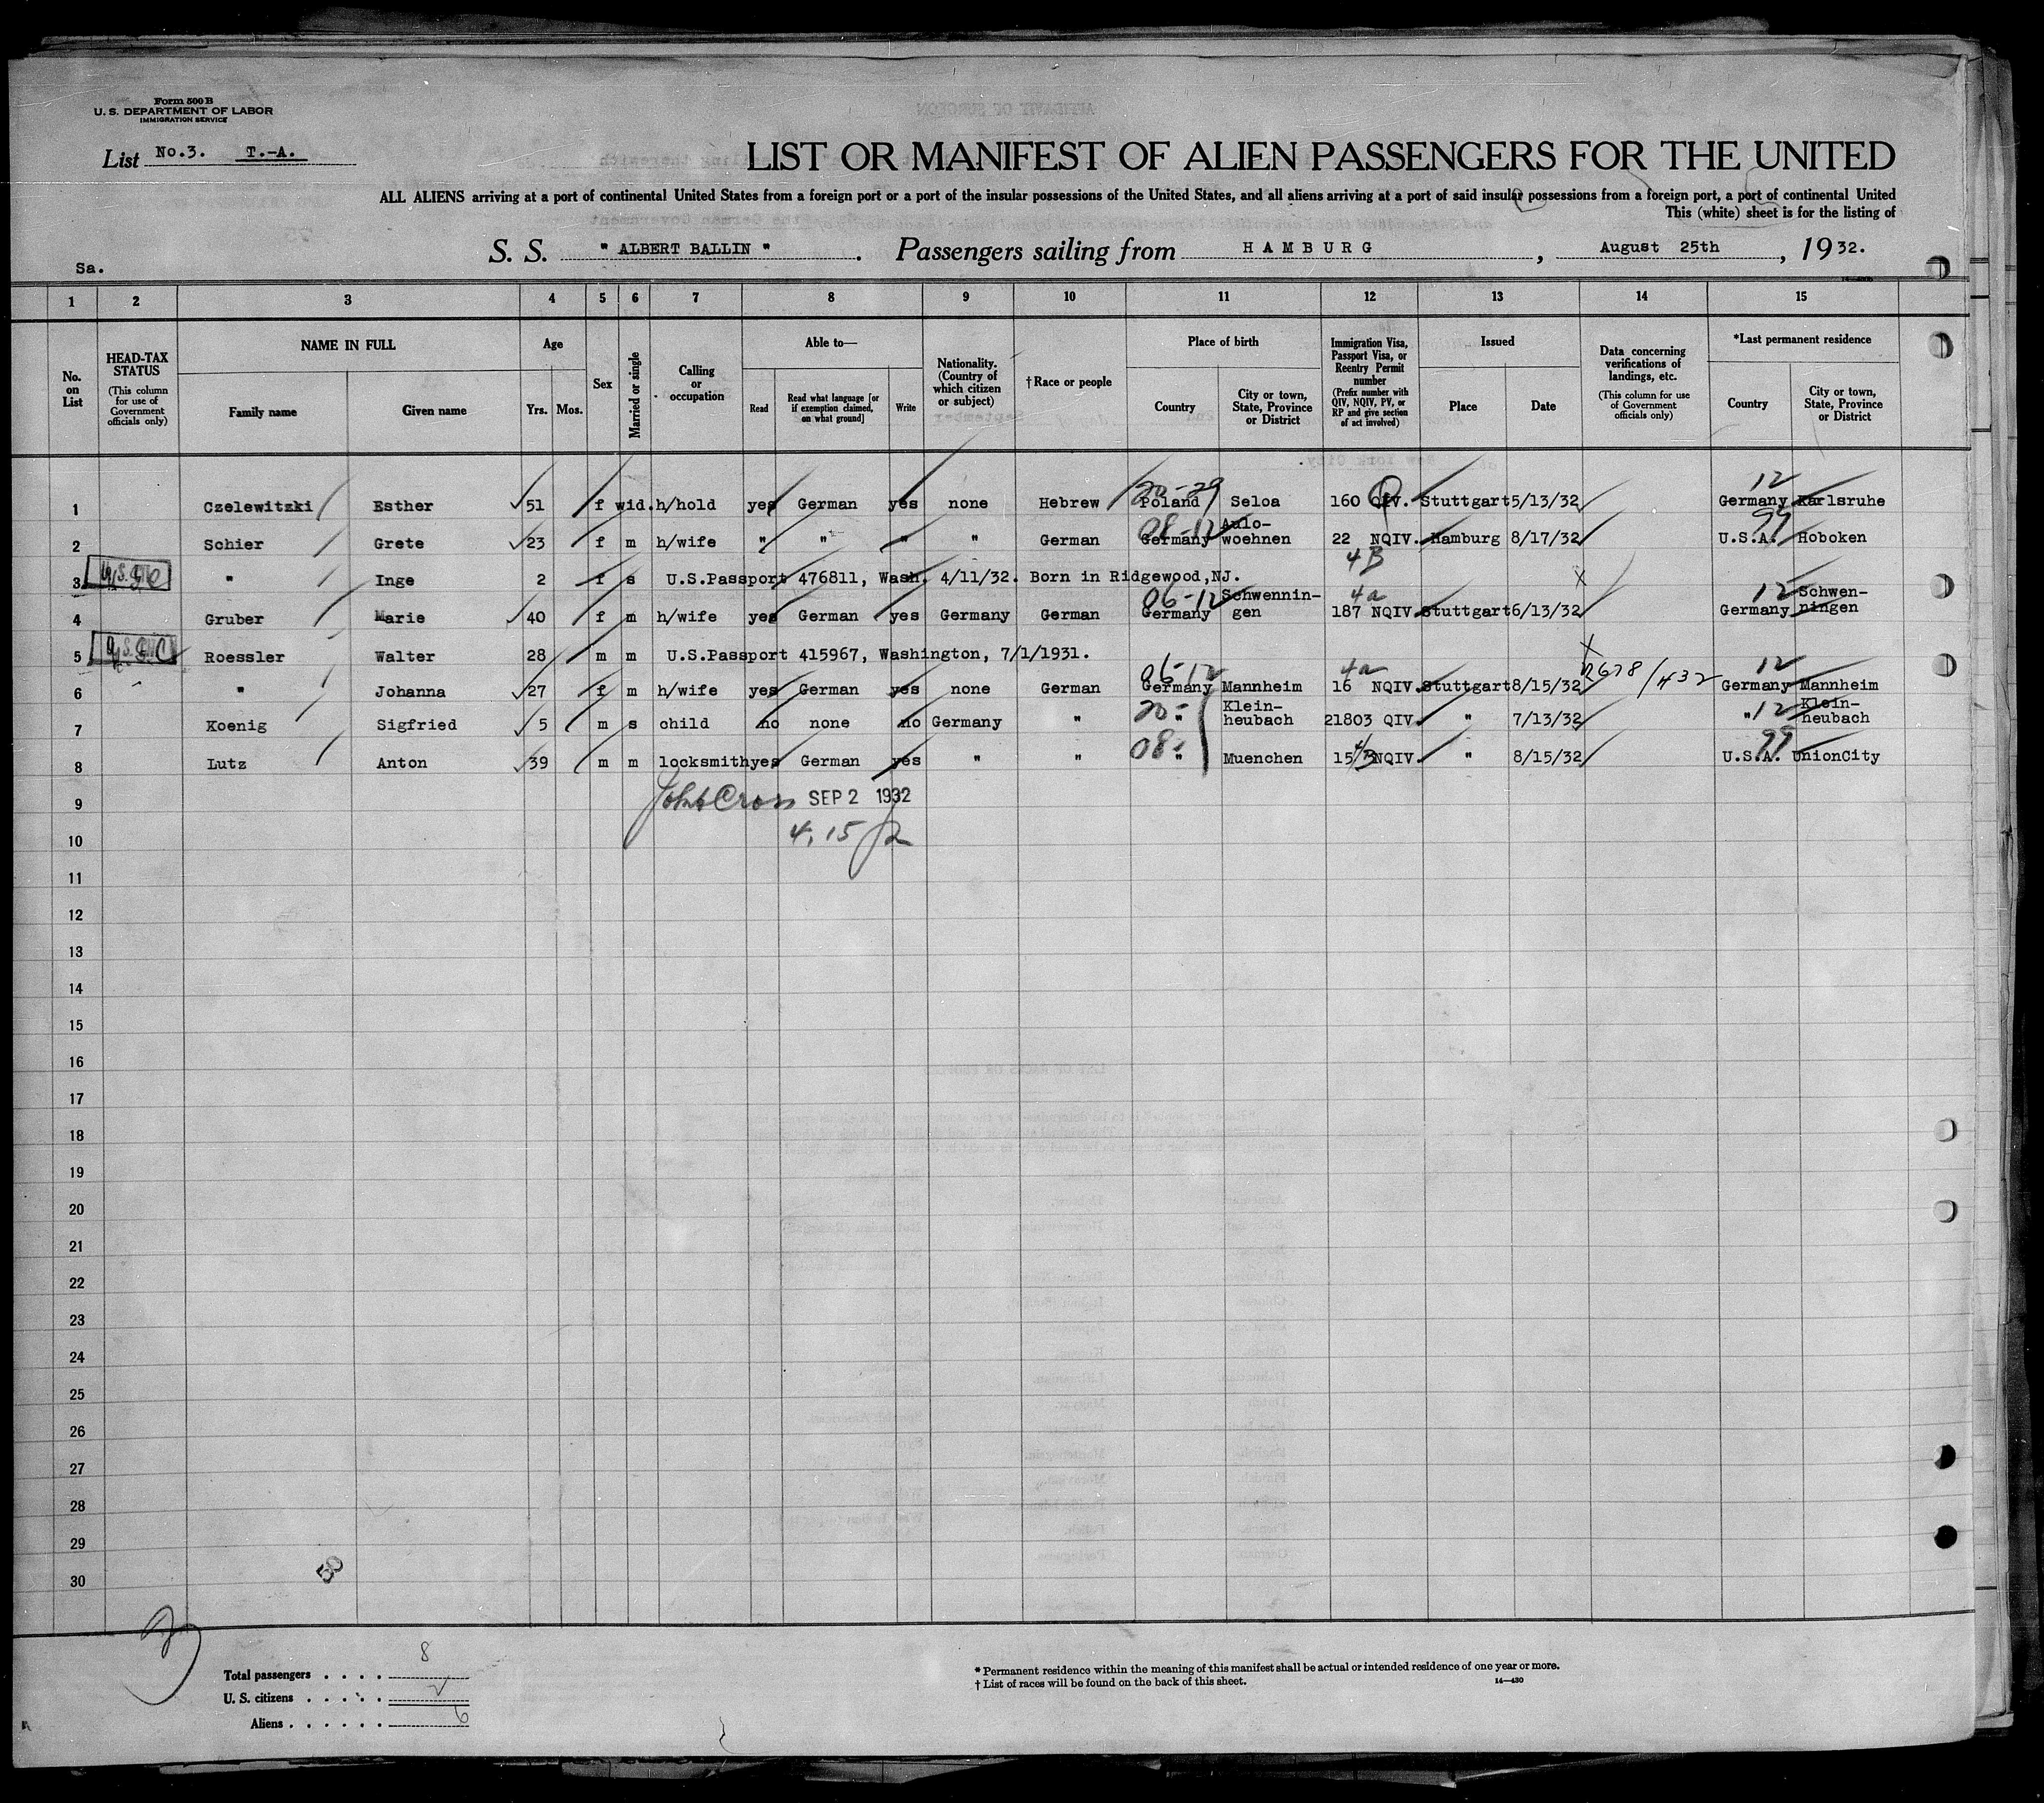 Form 500 B
U. S. DEPARTMENT OF LABOR
IMMIGRATION SERVICE
List No.3. T.-A.
LIST OR MANIFEST OF ALIEN PASSENGERS FOR THE UNITED
ALL ALIENS arriving at a port of continental United States from a foreign port or a port of the insular possessions of the United States, and all aliens arriving at a port of said insular possessions from a foreign port, a port of continental United
This (white) sheet is for the listing of
Sa. S. S. " ALBERT BALLIN ". Passengers sailing from HAMBURG, August 25th, 1932.
1 2 3 4 5 6 7 8 9 10 11 12 13 14 15
No. on List
HEAD-TAX STATUS
(This column for use of Government officials only)
NAME IN FULL
Family name Given name
Age
Yrs. Mos.
Sex
Married or single
Calling or occupation
Able to—
Read Read what language [or if exemption claimed, on what ground] Write
Nationality. (Country of which citizen or subject)
†Race or people
Place of birth
Country City or town, State, Province or District
Immigration Visa, Passport Visa, or Reentry Permit number
(Prefix number with QIV, NQIV, PV, or RP and give section of act involved)
Issued
Place Date
Data concerning verifications of landings, etc.
(This column for use of Government officials only)
*Last permanent residence
Country City or town, State, Province or District
20-29 12
1 Czelewitzki Esther 51 f wid. h/hold yes German yes none Hebrew Poland Seloa 160 QIV. Stuttgart 5/13/32 Germany Karlsruhe
08-12 99
2 Schier Grete 23 f m h/wife " " " " German Germany Aulo-woehnen 22 NQIV. Hamburg 8/17/32 U.S.A. Hoboken
4B
3 " Inge 2 f s U.S.Passport 476811, Wash. 4/11/32. Born in Ridgewood,NJ. X
06-12 4a 12
4 Gruber Marie 40 f m h/wife yes German yes Germany German Germany Schwennin-gen 187 NQIV. Stuttgart 6/13/32 Germany Schwen-ningen
5 Roessler Walter 28 m m U.S.Passport 415967, Washington, 7/1/1931. X
06-12 4a 12
6 " Johanna 27 f m h/wife yes German yes none German Germany Mannheim 16 NQIV. Stuttgart 8/15/32 Germany Mannheim
20- 12
7 Koenig Sigfried 5 m s child no none no Germany " " Klein-heubach 21803 QIV. " 7/13/32 " Klein-heubach
08- 99
8 Lutz Anton 39 m m locksmith yes German yes " " " Muenchen 15 NQIV. " 8/15/32 U.S.A. UnionCity
9 SEP 2 1932
10 4.15
11
12
13
14
15
16
17
18
19
20
21
22
23
24
25
26
27
28
29
30
50
Total passengers . . . . 8
U. S. citizens . . . . . 2
Aliens . . . . . . 6
* Permanent residence within the meaning of this manifest shall be actual or intended residence of one year or more.
† List of races will be found on the back of this sheet. 14—430